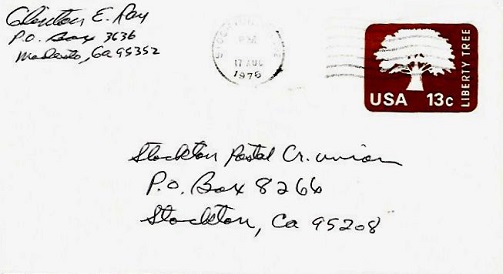 Clinton E. Ray
P.O. Box 3636
Modesto, Ca 95352
17 AUG
1976
LIBERTY TREE
USA 13c
Stockton Postal Cr. union
P.O. Box 8266
Stockton, Ca 95208